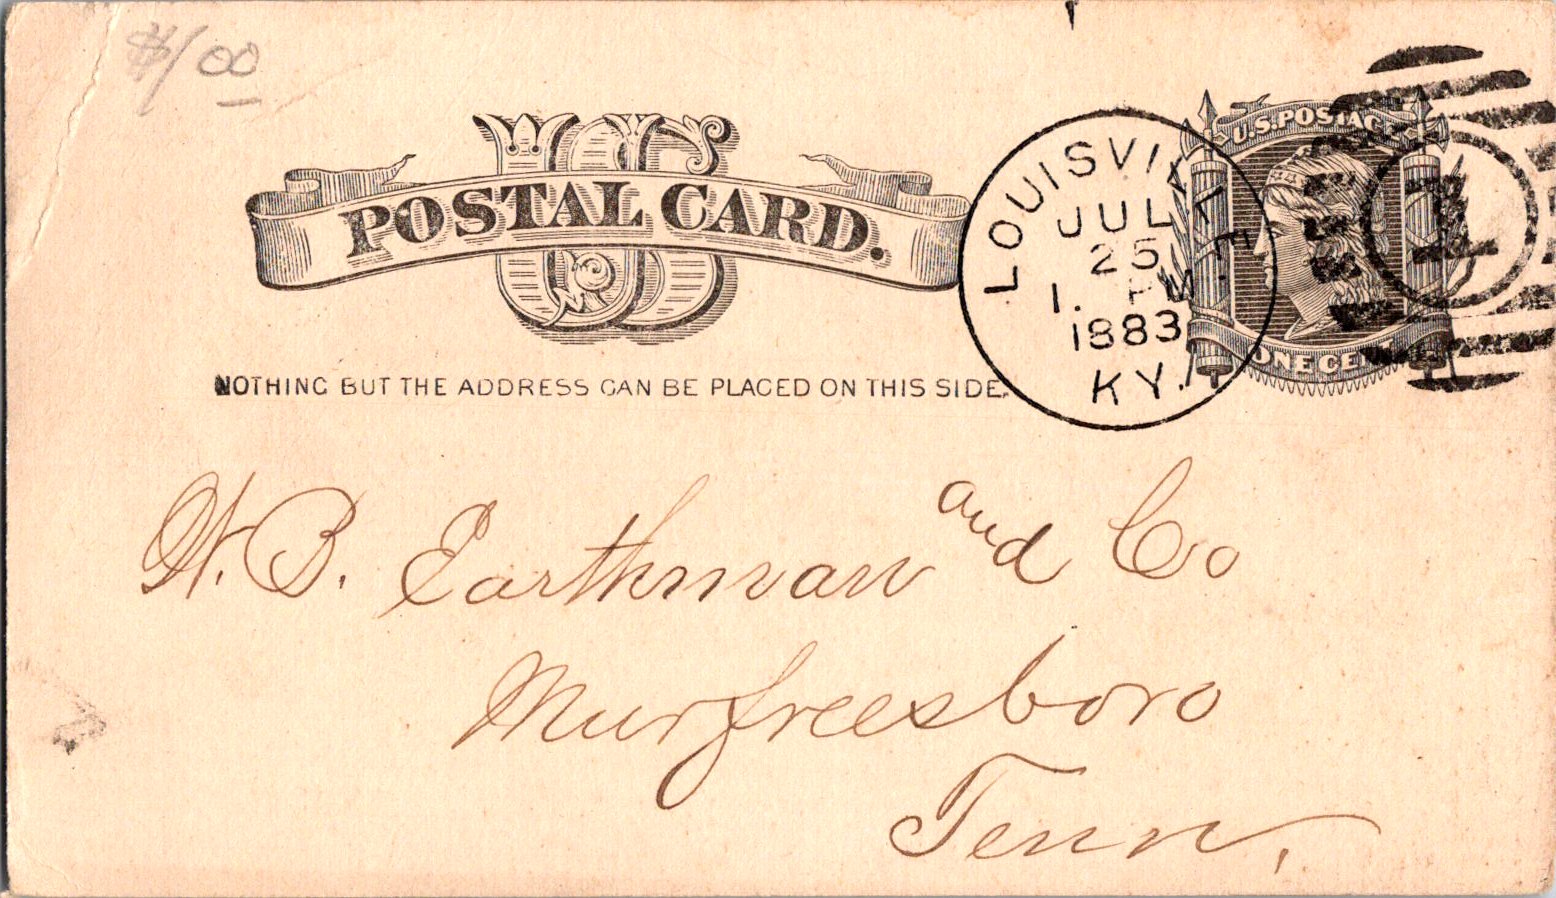 $1/00
US
POSTAL CARD.
NOTHING BUT THE ADDRESS CAN BE PLACED ON THIS SIDE.
LOUISVILLE
JUL
25
1. PM
1883
KY.
U.S. POSTAGE
ONE CENT
1
W. B. Earthman and Co
Murfreesboro
Tenn,